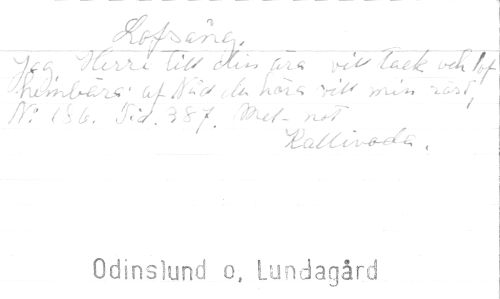 Lofsång.
Jag Herre till din ära vill tack och lof
hembära: af Nåd du höra vill min röst,
N: 186. Sid. 387. Mel- not
Kallivoda.
Odinslund o, Lundagård